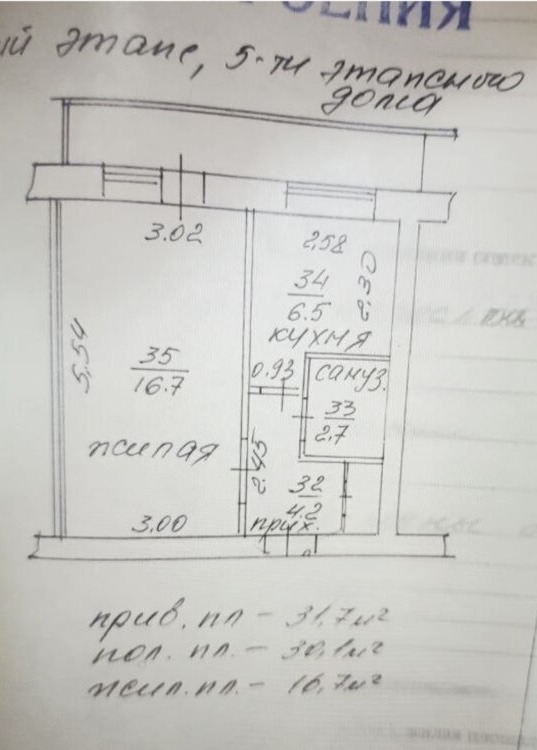 ый этапе, 5-ти этапсного
дома
3.02
2,58
2.30
34
6.5
кухня
5,54
35
16.7
0.93
сануз.
33
2.7
жилая
2.45
32
4.2
прих.
3.00
прив. пл - 31,7м²
пол. пл. - 30,1м²
жил. пл. - 16,7м²